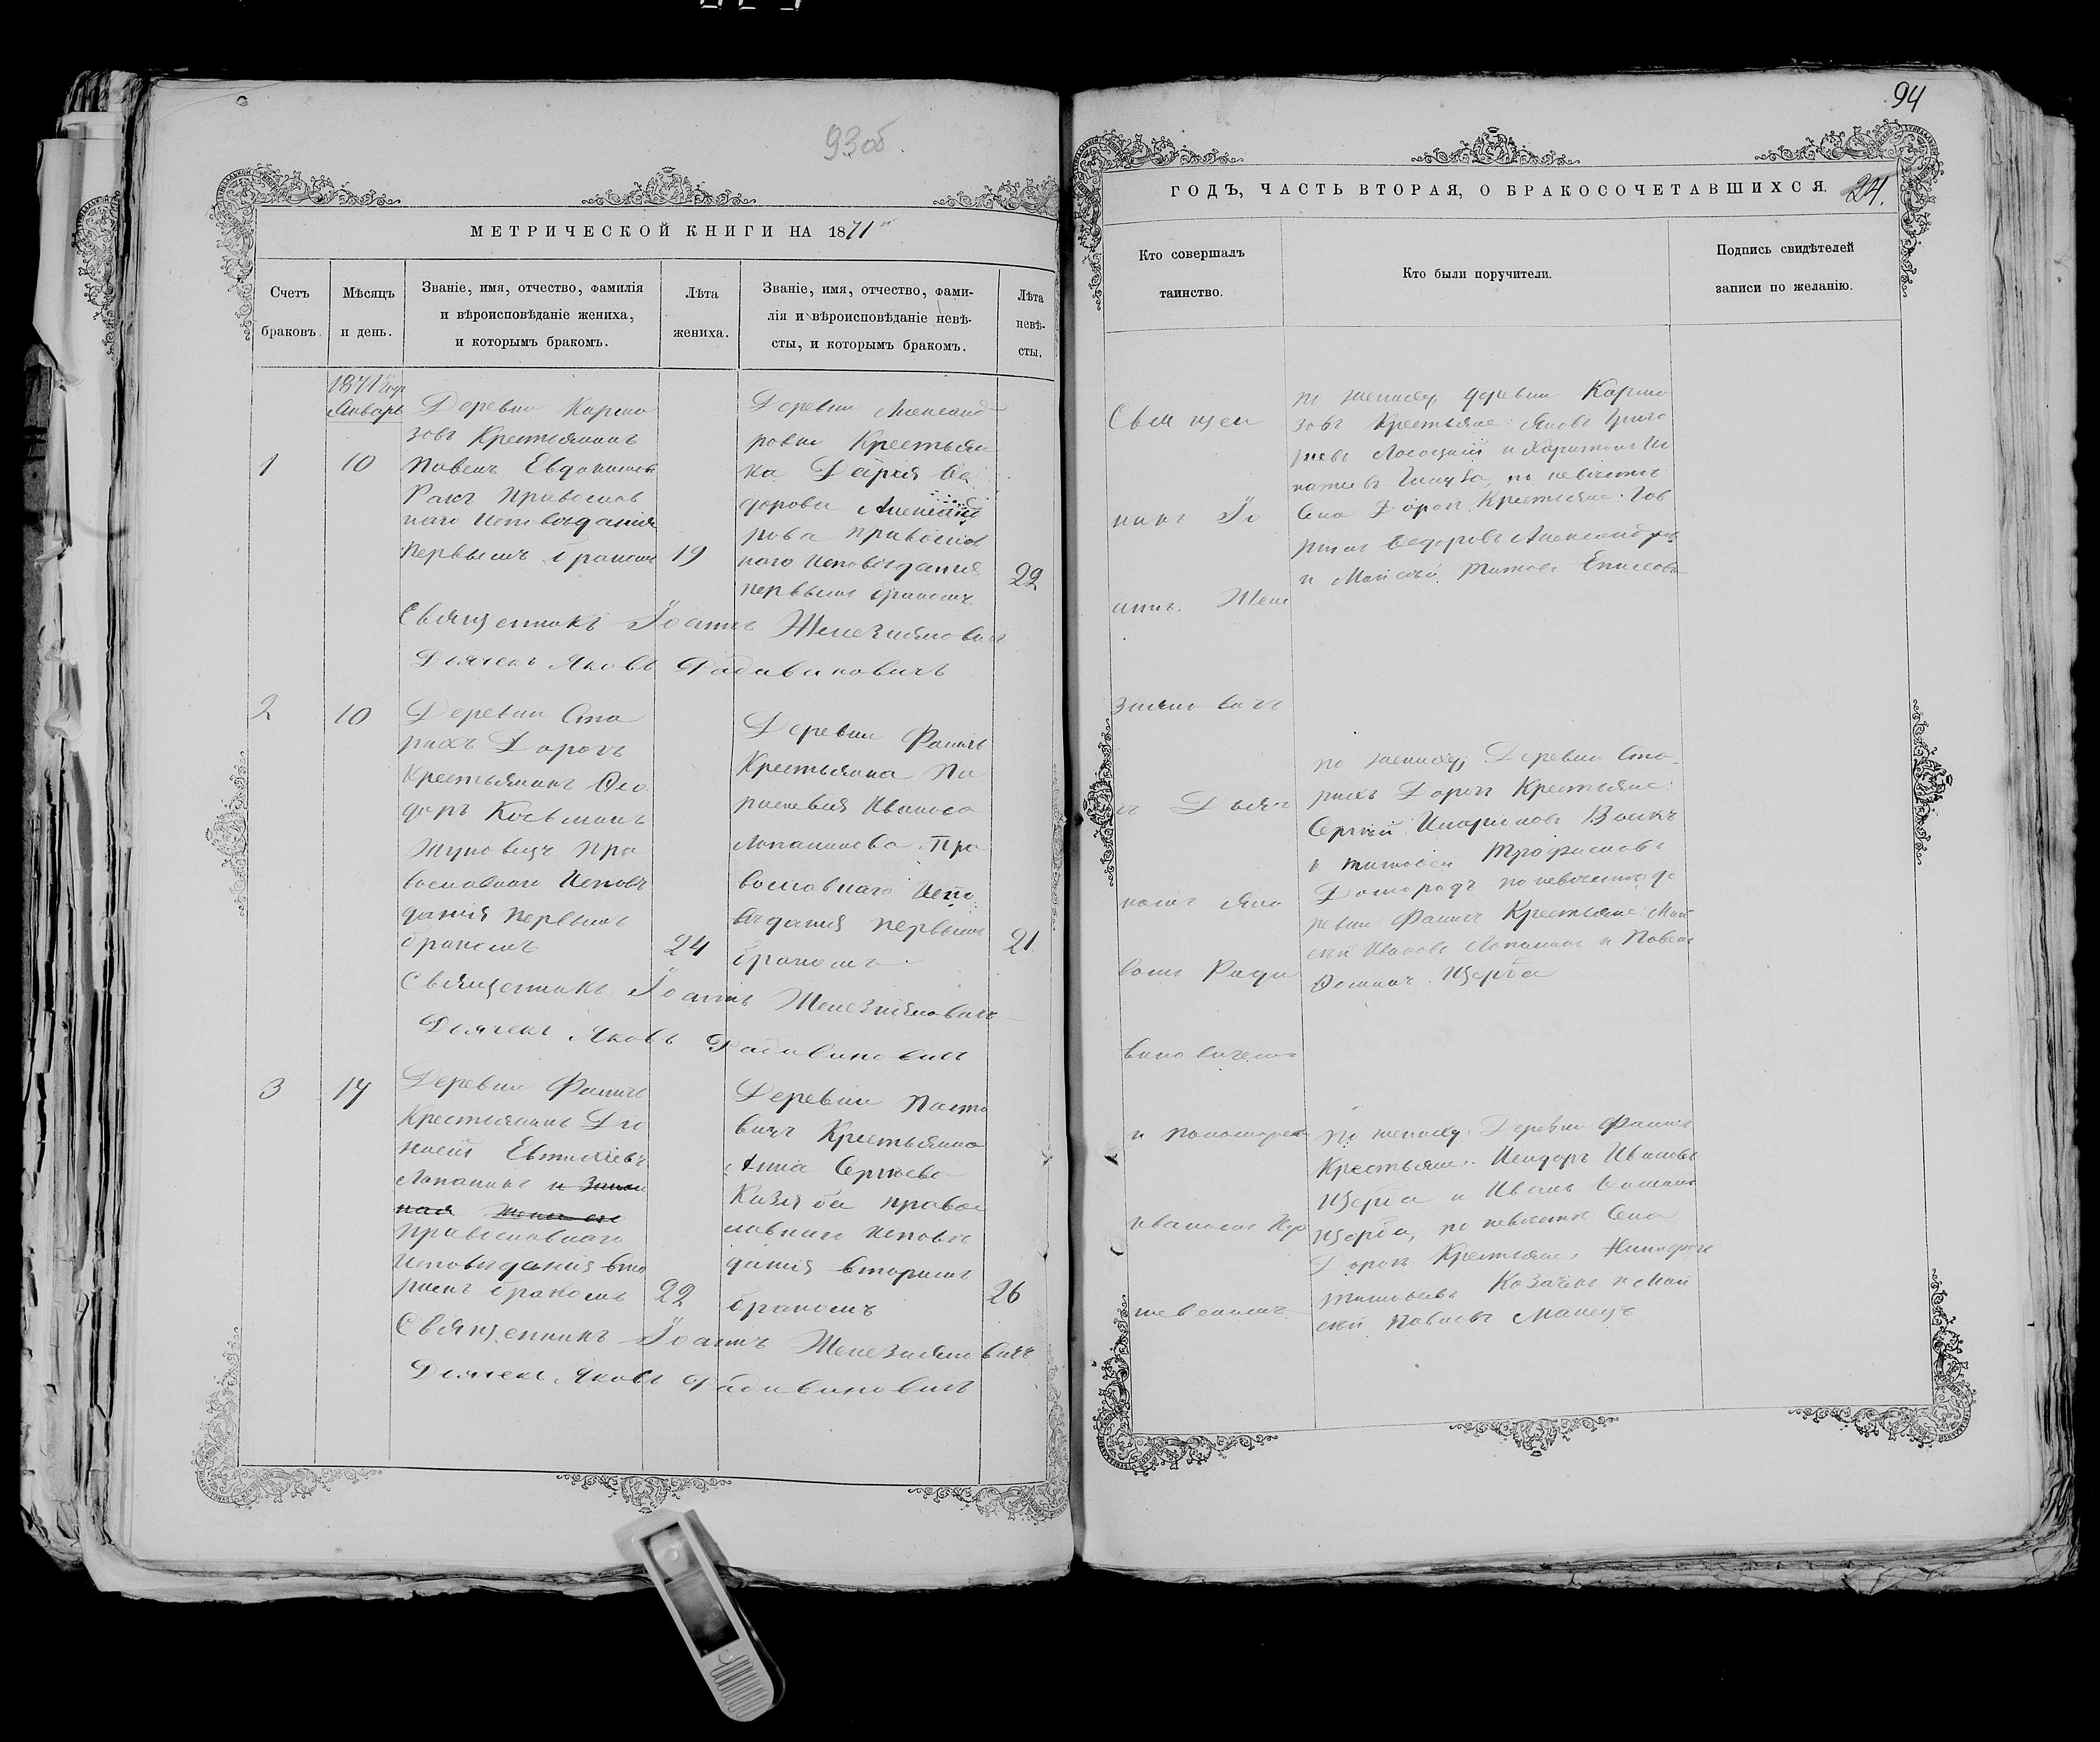 93об.
МЕТРИЧЕСКОЙ КНИГИ НА 1871й
Счетъ браковъ.
Мѣсяцъ и день.
Званіе, имя, отчество, фамилія
и вѣроисповѣданіе жениха,
и которымъ бракомъ.
Лѣта жениха.
Званіе, имя, отчество, фами-
лія и вѣроисповѣданіе невѣ-
сты, и которымъ бракомъ.
Лѣта невѣ-
сты.
1871 года
Январь
1
10
Деревни Кармо
зовъ Крестьянинъ
Павелъ Евдокимовъ
Ракъ Православ
наго Исповѣданія
первымъ бракомъ
19
Деревни Александ
ровки Крестьян
ка Дарія Ѳе
дорова
рова Православ
наго Исповѣданія
первымъ бракомъ
22
Священникъ Іоаннъ Железняковичъ
Дьячекъ Яковъ Радивиновичъ
2
10
Деревни Ста
рыхъ Дорогъ
Крестьянинъ Ѳео
доръ Косьминъ
Жуковецъ Пра
вославнаго Исповѣ
данія первымъ
бракомъ
24
Деревни Фаличъ
Крестьянка Па
раскевія Иванова
Лопатинова Пра
вославнаго Испо
вѣданія первымъ
бракомъ
21
Священникъ Іоаннъ Железняковичъ
Дьячекъ Яковъ Радивиновичъ
3
17
Деревни Фаличъ
Крестьянинъ Ди
Евтихіевъ
Лопатинъ
Православнаго
Исповѣданія вто
рымъ бракомъ
22
Деревни Пасто
вичъ Крестьянка
Анна Сергіева
Казяба правос
лавнаго Исповѣ
данія вторымъ
бракомъ
26
Священникъ Іоаннъ Железняковичъ
Дьячекъ Яковъ Радивиновичъ
94
ГОДЪ, ЧАСТЬ ВТОРАЯ, О БРАКОСОЧЕТАВШИХСЯ.
24.
Кто совершалъ
таинство.
Кто были поручители.
Подпись свидѣтелей
записи по желанію.
Священ
никъ Іо
аннъ Желе
зняковичъ
съ Дьяч
комъ Яко
вомъ Ради
виновичемъ
и пономаремъ
Иваномъ
по женихѣ, деревни Кармо
зовъ Крестьяне: Яковъ Григо
рьевъ и Харитонъ Иг
натьевъ по невѣстѣ
Ста Дорогъ Крестьяне:
Ѳедоровъ Александровъ
и Моисей Титовъ
по женихѣ, Деревни Ста-
рыхъ Дорогъ Крестьяне:
Сергій Иларіоновъ Волкъ
и Тимофей Трофимовъ
Доморадъ по невѣстѣ де
ревни Фаличъ Крестьяне: Мои
сей Ивановъ Лопатинъ и Павелъ
Ѳоминъ Щерба
по женихѣ, Деревни Фаличъ
Крестьяне: Исидоръ Ивановъ
Щерба и Иванъ
Щерба, по невѣстѣ Ста
Дорогъ Крестьяне: Никифоръ
Тимофеевъ Козаченъ и Мои
сей Павловъ Манецъ